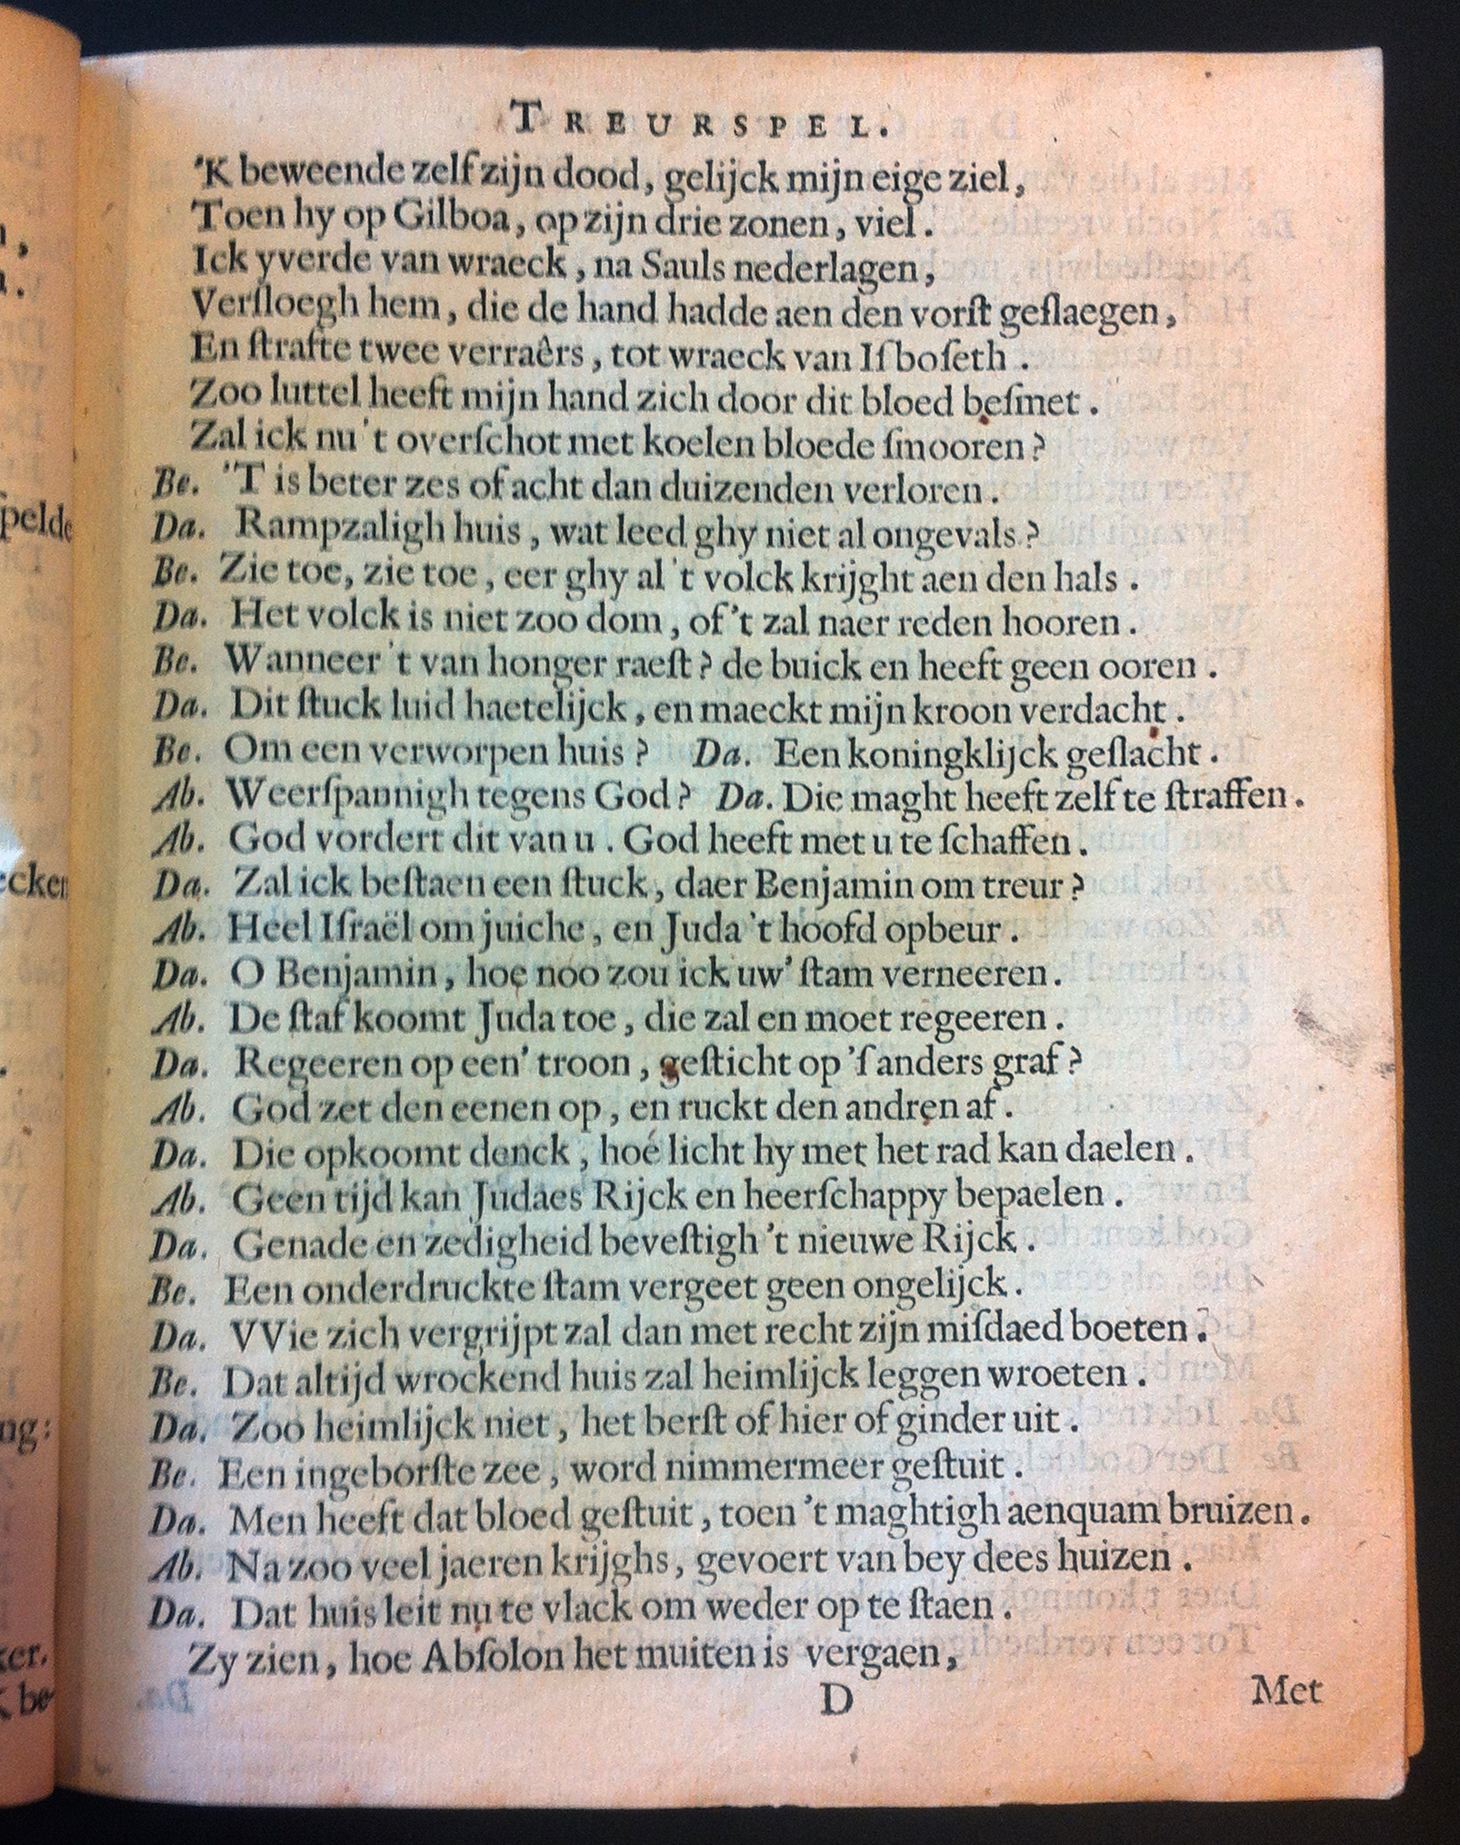 TREURSPEL.
'K beweende zelf zijn dood, gelijck mijn eige ziel,
Toen hy op Gilboa, op zijn drie zonen, viel.
Ick yverde van wraeck, na Sauls nederlagen,
Verſloegh hem, die de hand hadde aen den vorſt geſlaegen,
En ſtrafte twee verraêrs, tot wraeck van Iſboſeth.
Zoo luttel heeft mijn hand zich door dit bloed beſmet.
Zal ick nu 't overſchot met koelen bloede ſmooren?
Be. 'T is beter zes of acht dan duizenden verloren.
Da. Rampzaligh huis, wat leed ghy niet al ongevals?
Be. Zie toe, zie toe, eer ghy al 't volck krijght aen den hals.
Da. Het volck is niet zoo dom, of 't zal naer reden hooren.
Be. Wanneer 't van honger raeſt? de buick en heeft geen ooren.
Da. Dit ſtuck luid haetelijck, en maeckt mijn kroon verdacht.
Be. Om een verworpen huis? Da. Een koningklijck geſlacht.
Ab. Weerſpannigh tegens God? Da. Die maght heeft zelf te ſtraffen.
Ab. God vordert dit van u. God heeft met u te ſchaffen.
Da. Zal ick beſtaen een ſtuck, daer Benjamin om treur?
Ab. Heel Iſraël om juiche, en Juda 't hoofd opbeur.
Da. O Benjamin, hoe noo zou ick uw' ſtam verneeren.
Ab. De ſtaf koomt Juda toe, die zal en moet regeeren.
Da. Regeeren op een' troon, geſticht op 'ſ anders graf?
Ab. God zet den eenen op, en ruckt den andren af.
Da. Die opkoomt denck, hoe licht hy met het rad kan daelen.
Ab. Geen tijd kan Judaes Rijck en heerſchappy bepaelen.
Da. Genade en zedigheid beveſtigh 't nieuwe Rijck.
Be. Een onderdruckte ſtam vergeet geen ongelijck.
Da. VVie zich vergrijpt zal dan met recht zijn miſdaed boeten.
Be. Dat altijd wrockend huis zal heimlijck leggen wroeten.
Da. Zoo heimlijck niet, het berſt of hier of ginder uit.
Be. Een ingeborſte zee, word nimmermeer geſtuit.
Da. Men heeft dat bloed geſtuit, toen 't maghtigh aenquam bruizen.
Ab. Na zoo veel jaeren krijghs, gevoert van bey dees huizen.
Da. Dat huis leit nu te vlack om weder op te ſtaen.
Zy zien, hoe Abſolon het muiten is vergaen,
D
Met